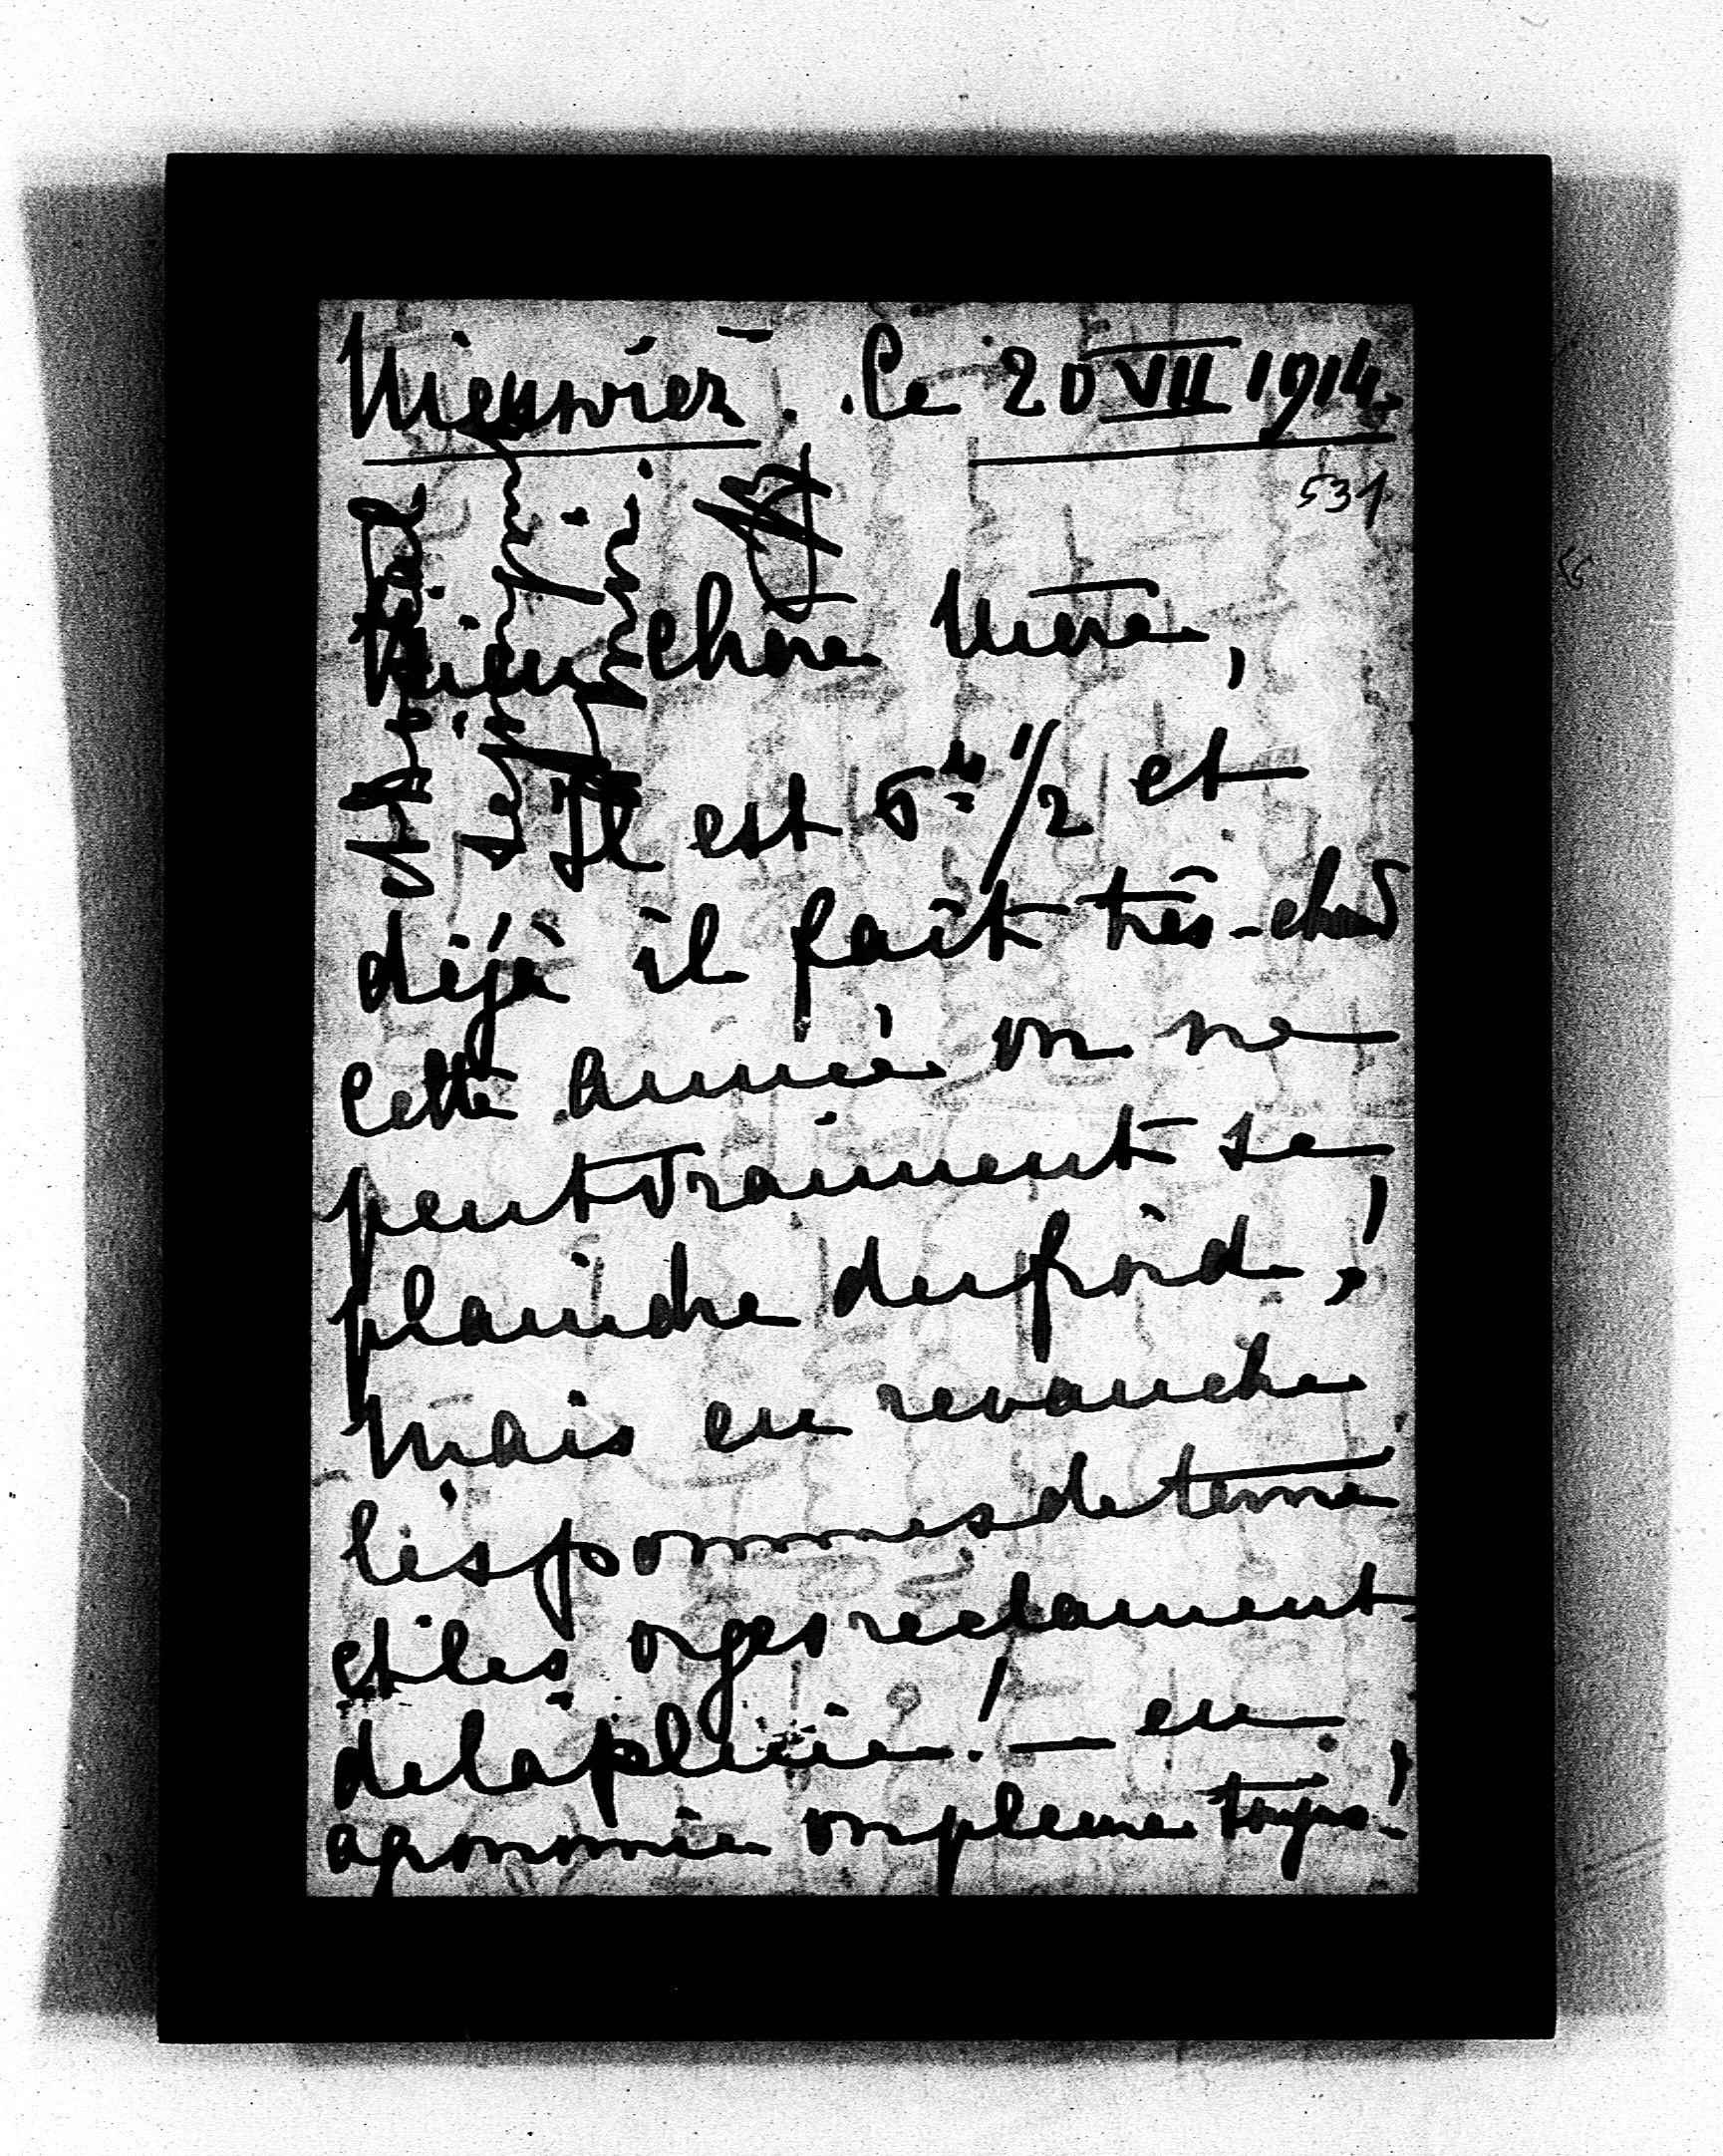 Nieśwież. le 20 VII 1914.
531
Bien chère Mère,
Il est 6 h 1/2 et
déjà il fait très-chaud
cette année on ne
peut vraiment se
plaindre du froid,!
Mais en revanche
les pommes de terre
et les orges réclament
de la pluie! — en
agronomie on pleure toujrs!